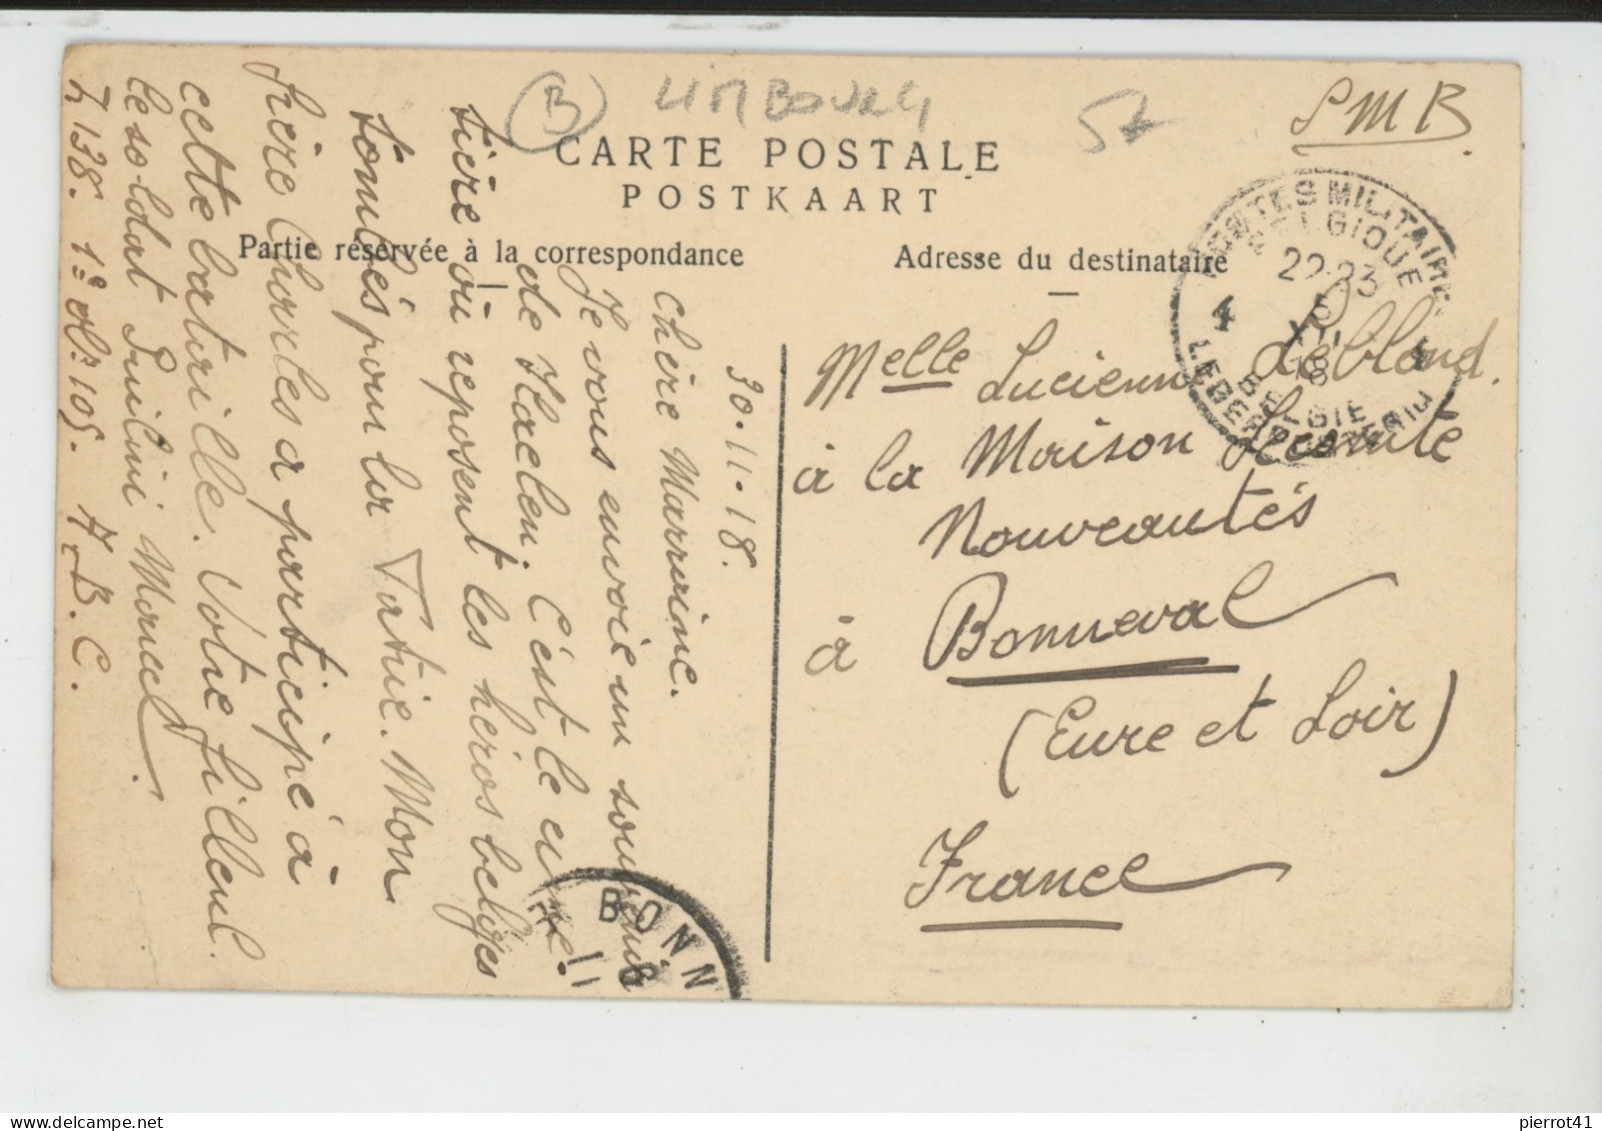 B
LIMBOURG
57
S M B.
CARTE POSTALE
POSTKAART
Partie réservée à la correspondance
Adresse du destinataire
30.11.18.
Chère Marraine.
Je vous envoie un souvenir
de Haelen. C'est le cime-
tière où reposent les héros belges
tombés pour la Patrie. Mon
frère Charles a participé à
cette bataille. Votre filleul.
le soldat Marcel.
Z, 138. 1e Cie 105. A.B.C.
Melle Lucienne Leblond.
à la Maison Lecomte
Nouveautés
à Bonneval
(Eure et Loir)
France
POSTES MILITAIRES
BELGIQUE
22-23
5
XII
18
4 4
BELGIE
BONN
11
delcampe.net
pierrot41